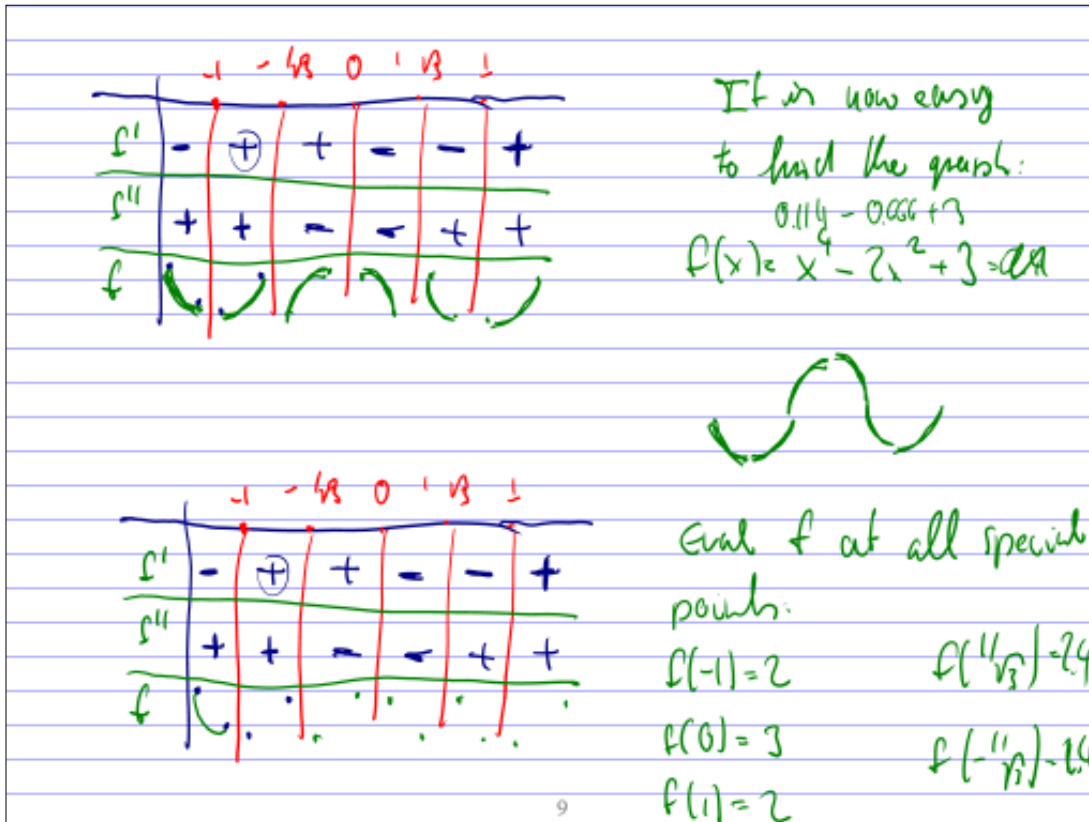 -1 -1/√3 0 1/√3 1
f' - + + - - +
f'' + + - - + +
f
It is now easy
to find the graph:
0.114 - 0.666 + 3
f(x) = x⁴ - 2x² + 3 =
-1 -1/√3 0 1/√3 1
f' - + + - - +
f'' + + - - + +
f
Eval f at all special
points:
f(-1) = 2 f(1/√3) = 2.4
f(0) = 3 f(-1/√3) = 2.4
f(1) = 2
9